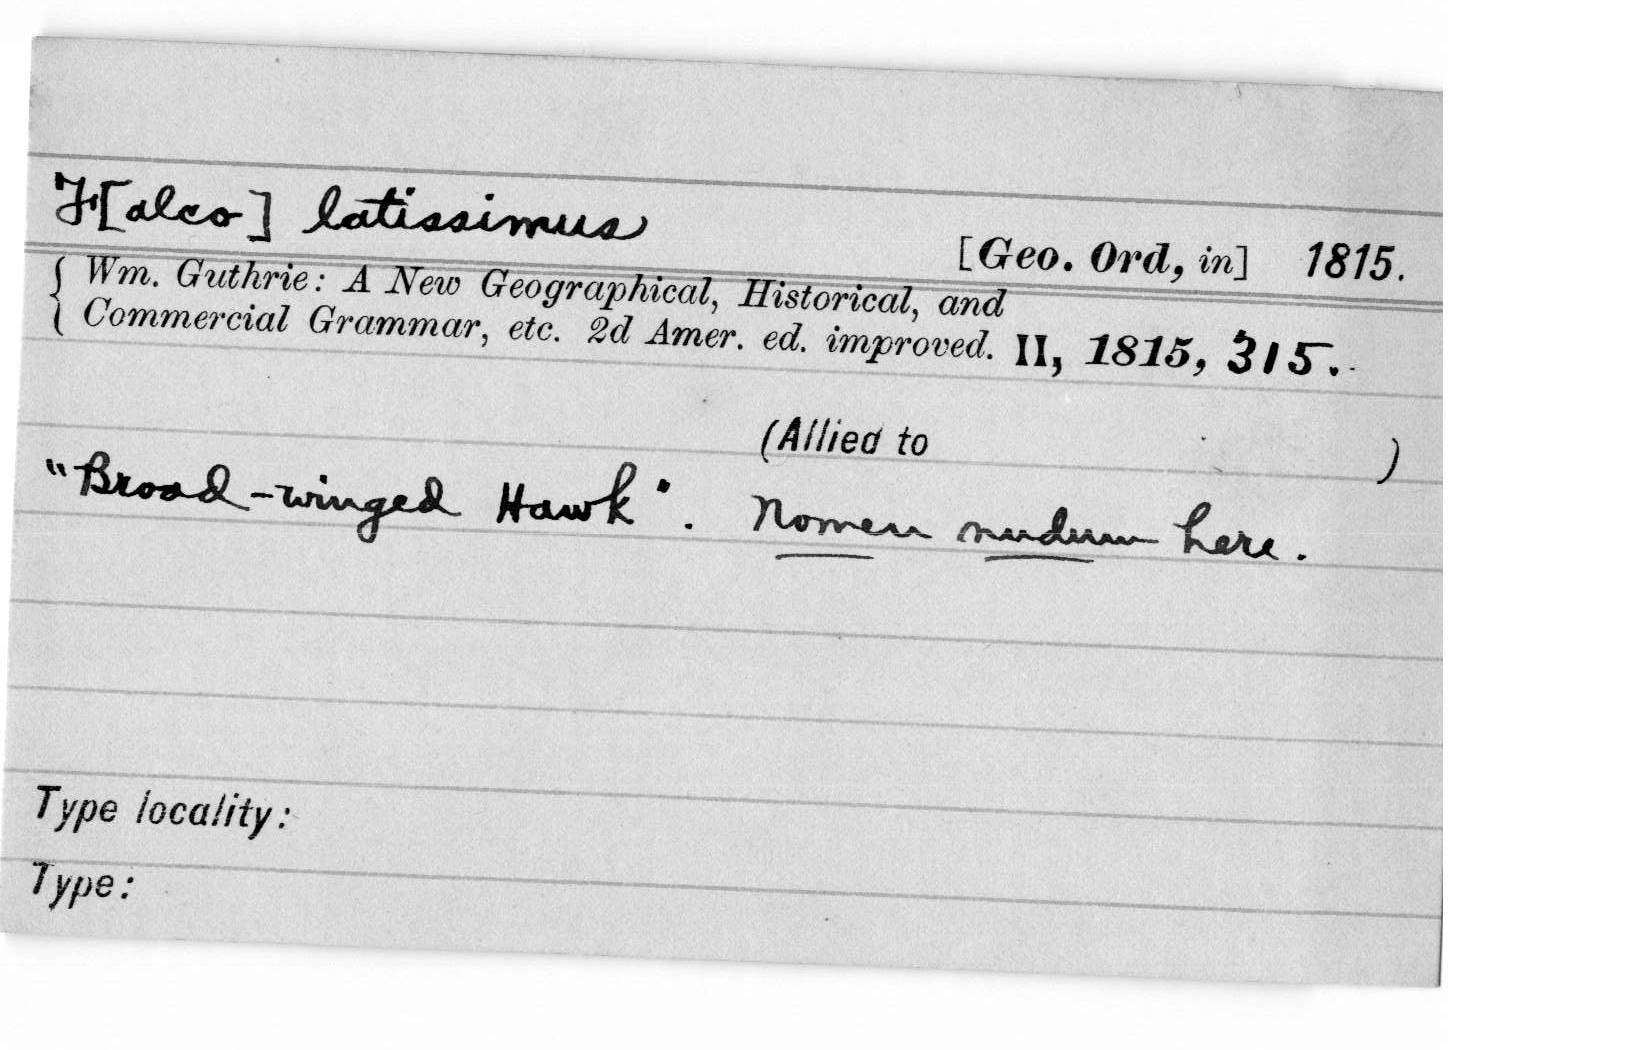 F[alco] latissimus [Geo. Ord, in] 1815.
{ Wm. Guthrie: A New Geographical, Historical, and
{ Commercial Grammar, etc. 2d Amer. ed. improved. II, 1815, 315.
(Allied to )
"Broad-winged Hawk". Nomen nudum here.
Type locality:
Type: